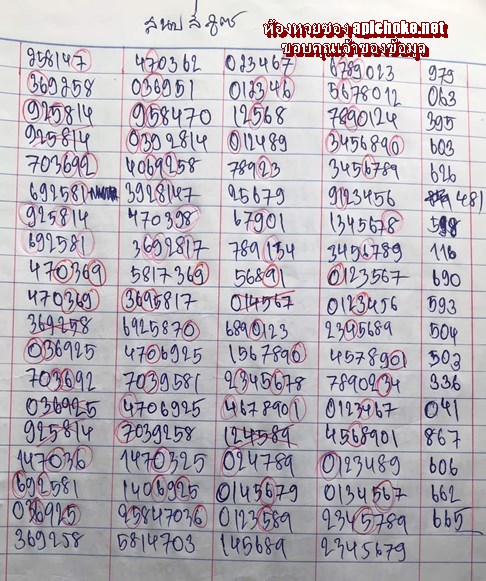 สนบสี่สูตร
ห้องหวยของ aplchoke.net
ขอบคุณเจ้าของข้อมูล
258147 470362 023467 6789023 979
369258 036951 012346 5678012 063
925814 958470 12568 7890124 395
925814 0392814 012489 3456890 603
703692 4069258 78923 3456789 626
692581 3928147 25679 9123456 481
925814 470398 67901 1345678 598
692581 3692817 789134 3456789 116
470369 5817369 56891 0123567 690
470369 3695817 014567 0123456 593
369258 6925870 6890123 2395689 504
036925 4706925 1567890 4578901 503
703692 7039581 2345678 7890234 336
036925 4706925 4678901 0123467 041
925814 7039258 124589 4568901 867
147036 1470325 024789 0123489 606
692581 1406925 0143679 0134567 662
036925 25847036 0123589 2345789 665
369258 5814703 145689 2345679